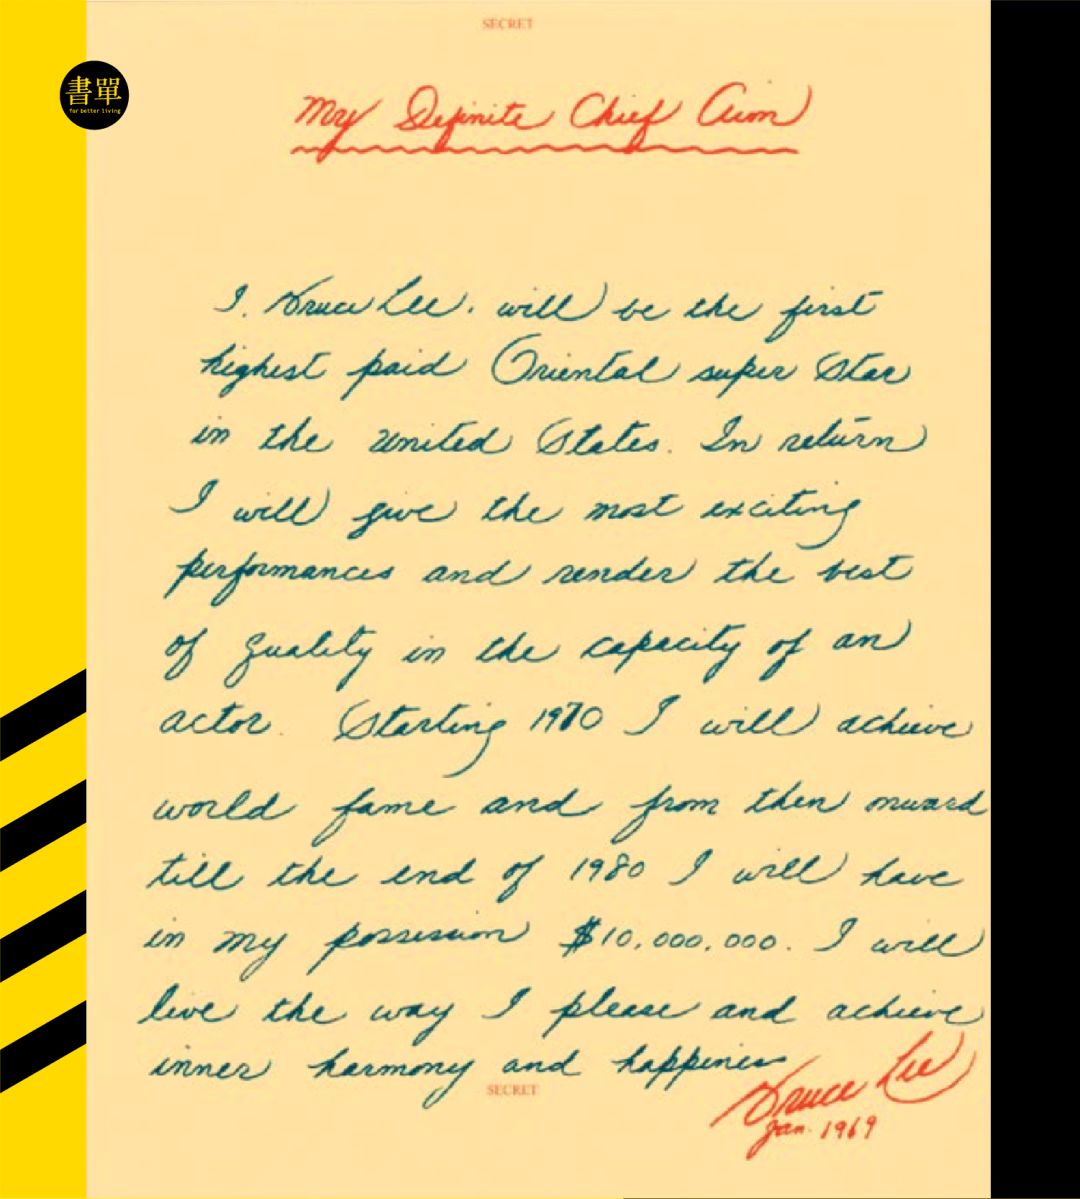 SECRET
書單
for better living
My Definite Chief Aim
I, Bruce Lee, will be the first
highest paid Oriental super Star
in the United States. In return
I will give the most exciting
performances and render the best
of quality in the capacity of an
actor. Starting 1970 I will achieve
world fame and from then onward
till the end of 1980 I will have
in my possession $10,000,000. I will
live the way I please and achieve
inner harmony and happiness
SECRET
Bruce Lee
Jan. 1969